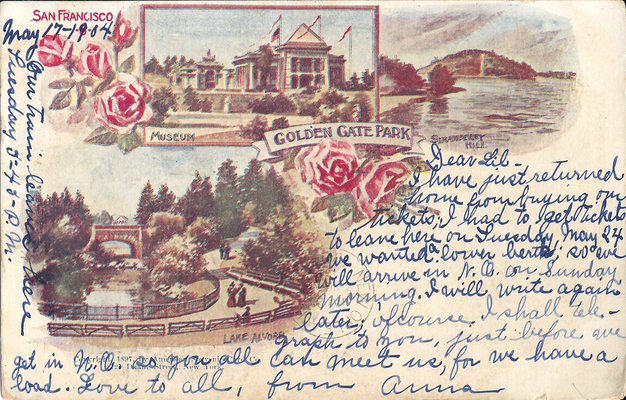 SAN FRANCISCO
May 17-1904
MUSEUM
GOLDEN GATE PARK
STRAWBERRY
HILL
LAKE ALVORD
Our train leaves here
Tuesday 5-45-P.M.
Dear Lil-
I have just returned
home from buying our
tickets, I had to get tickets
to leave here on Tuesday, May 24
we wanted a lower berth, so we
will arrive in N.O. on Sunday
morning. I will write again
later, ofcourse, I shall tele-
graph to you, just before we
get in N.O. so you all can meet us, for we have a
load. Love to all, from Anna
Copyright, 1897, by
Street, New York